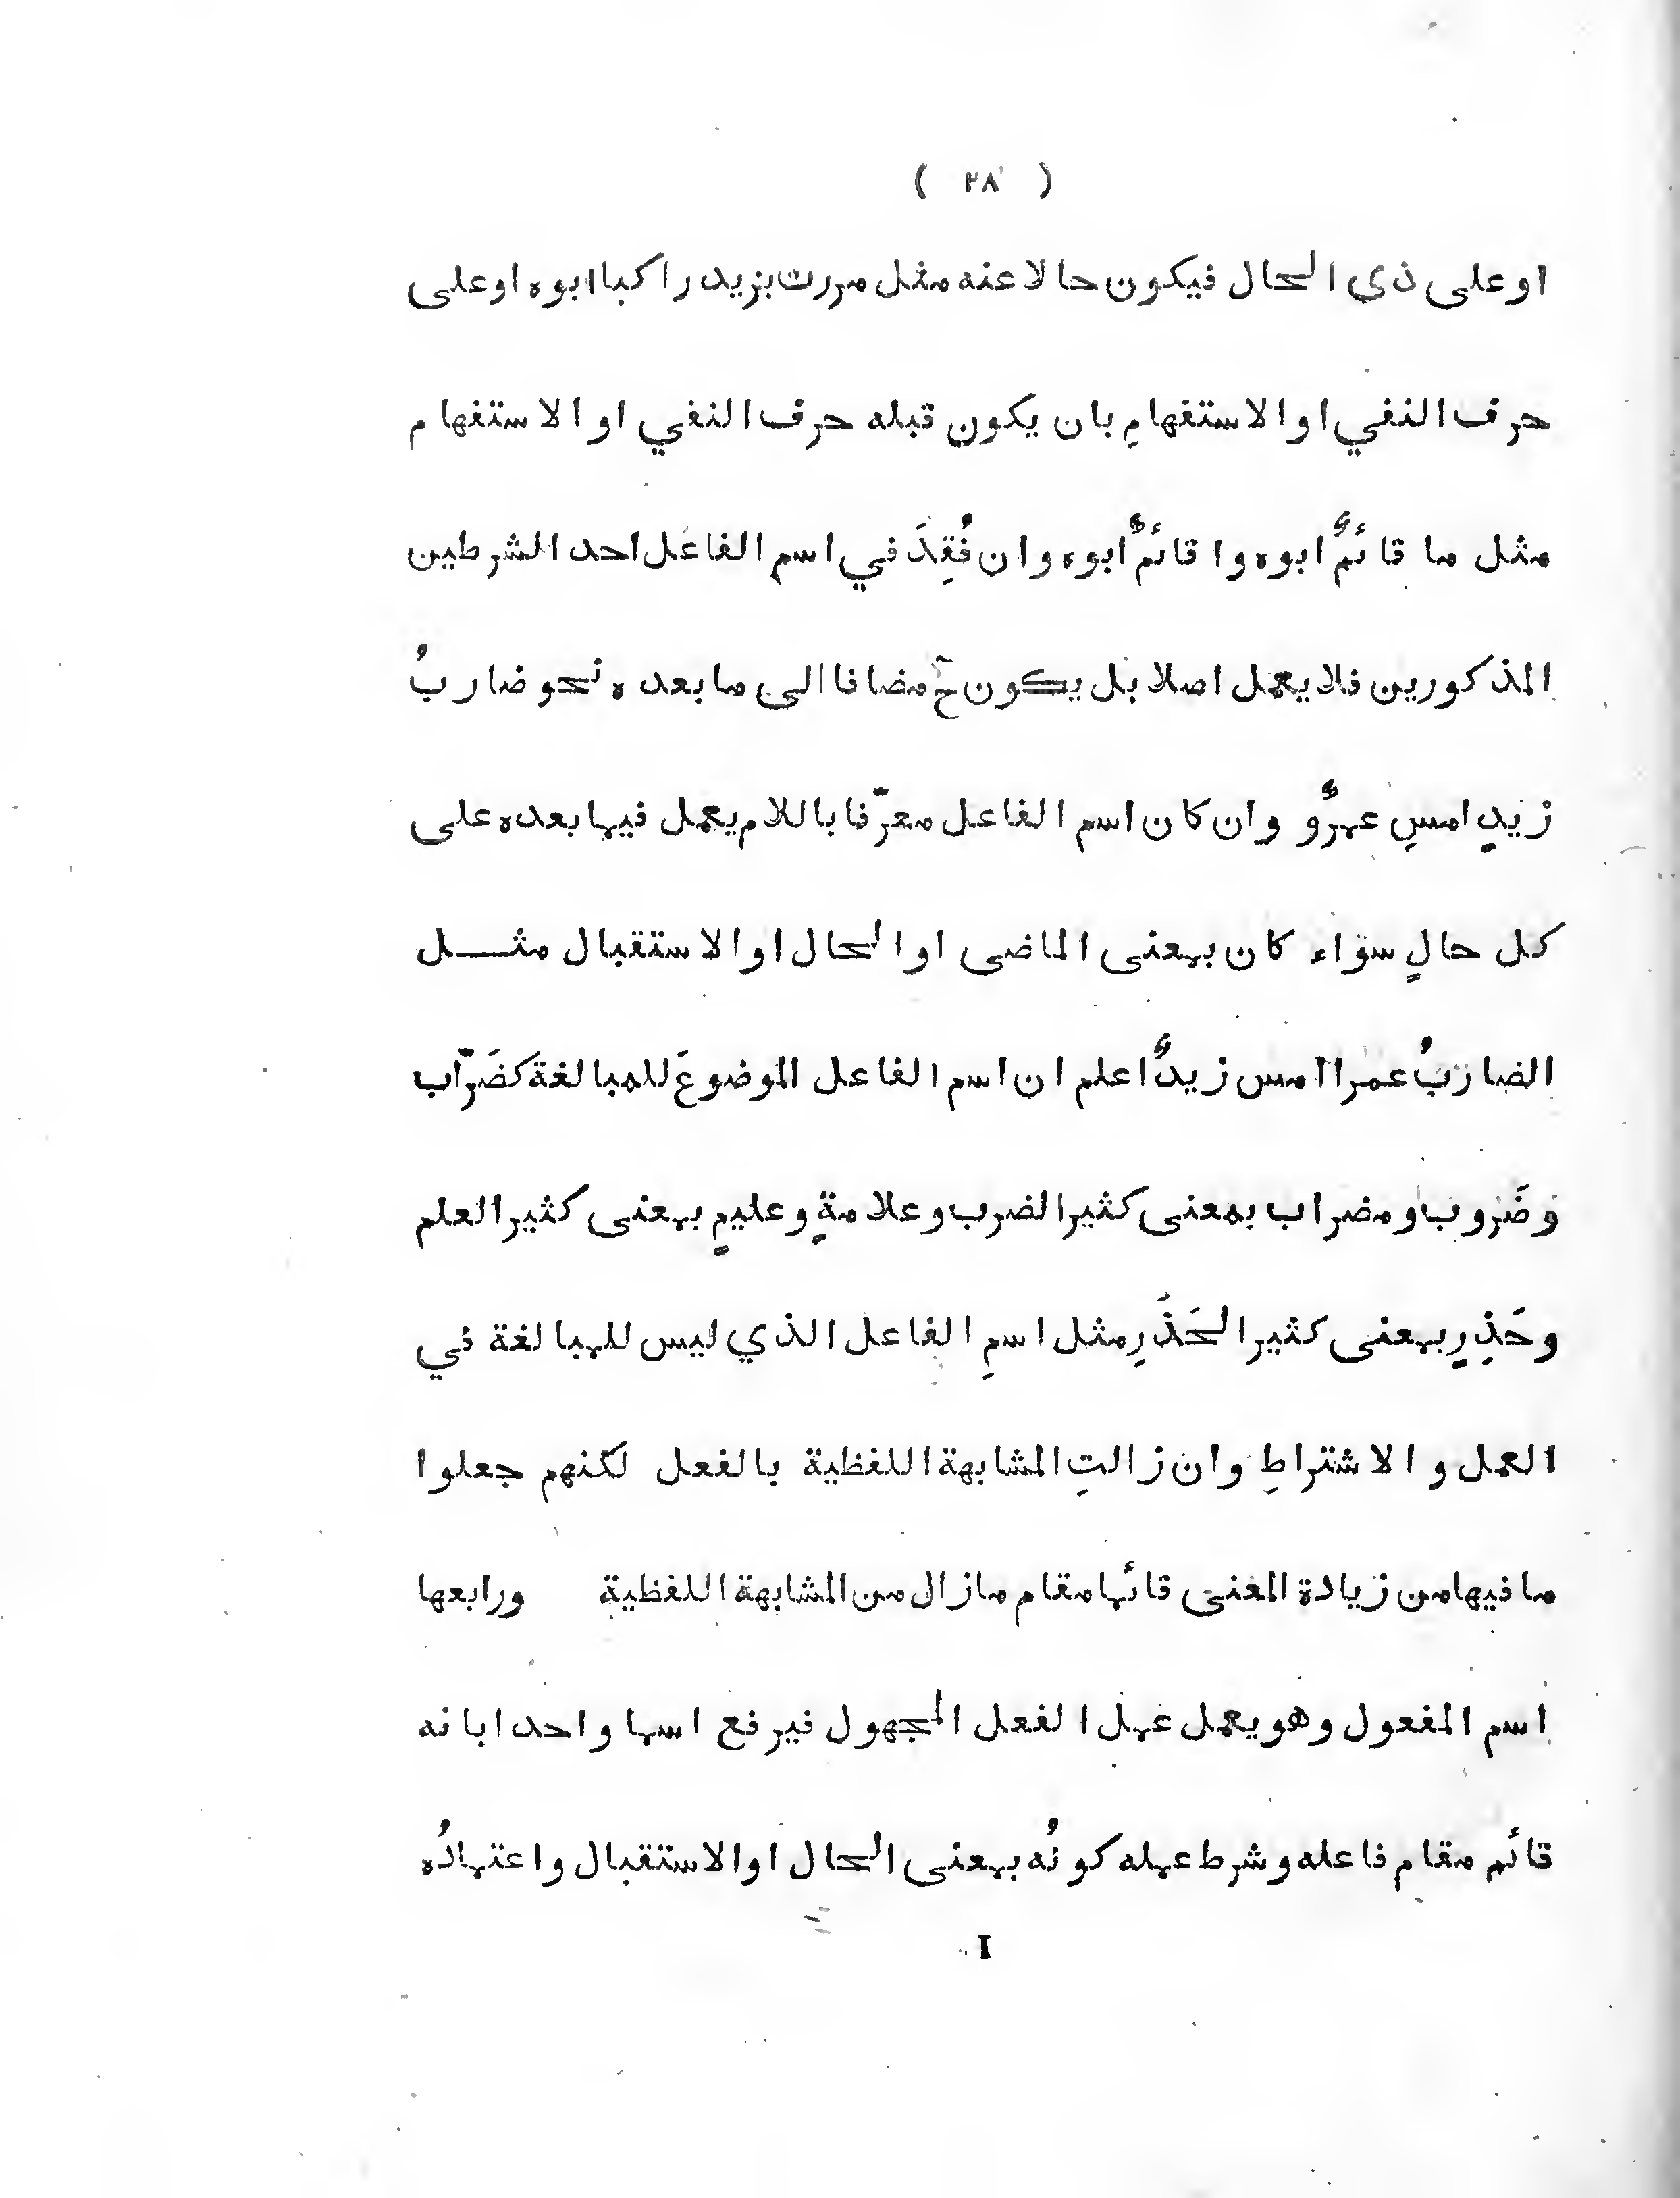 ( ٢٨ )
او على ذي الحال فيكون حالا عنه مثل مررت بزيد راكبا ابوه او على
حرف النفي او الاستفهامِ بان يكون قبله حرف النفي او الاستفهام
مثل ما قائمٌ ابوه وا قائمٌ ابوه وان فُقِدَ في اسم الفاعل احد الشرطين
المذكورين فلا يعمل اصلا بل يكون حٓ مضافا الى ما بعده نحو ضاربُ
زيدٍ امسِ عمرٌو وان كان اسم الفاعل معرّفا باللام يعمل فيما بعده على
كل حالٍ سواء كان بمعنى الماضى او الحال او الاستقبال مثـــل
الضاربُ عمرا امس زيدٌ اعلم ان اسم الفاعل الموضوعَ للمبالغة كَضَرّاب
وضَروب ومضراب بمعنى كثير الضرب وعلامةٍ وعليمٍ بمعنى كثير العلم
وحَذِرٍ بمعنى كثير الحَذَرِ مثل اسمِ الفاعل الذي ليس للمبالغة في
العمل و الاشتراطِ وان زالتِ المشابهة اللفظية بالفعل لكنهم جعلوا
ما فيها من زيادة المعنى قائما مقام ما زال من المشابهة اللفظية ورابعها
اسم المفعول وهو يعمل عمل الفعل المجهول فيرفع اسما واحدا بانه
قائم مقام فاعله وشرط عمله كونُه بمعنى الحال او الاستقبال واعتمادُه
I